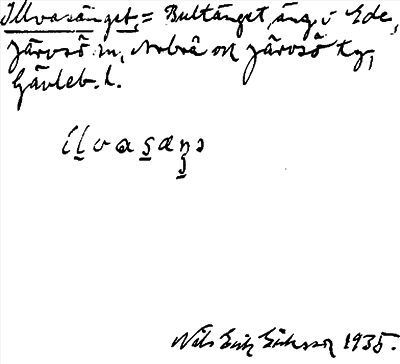 Illvasänget, = Bultänget, äng i Ede,
Järvsö sn, Norbrå och Järvsö kg,
Gävleb. l.
illvasæŋə
Nils Erik Eriksson 1935.